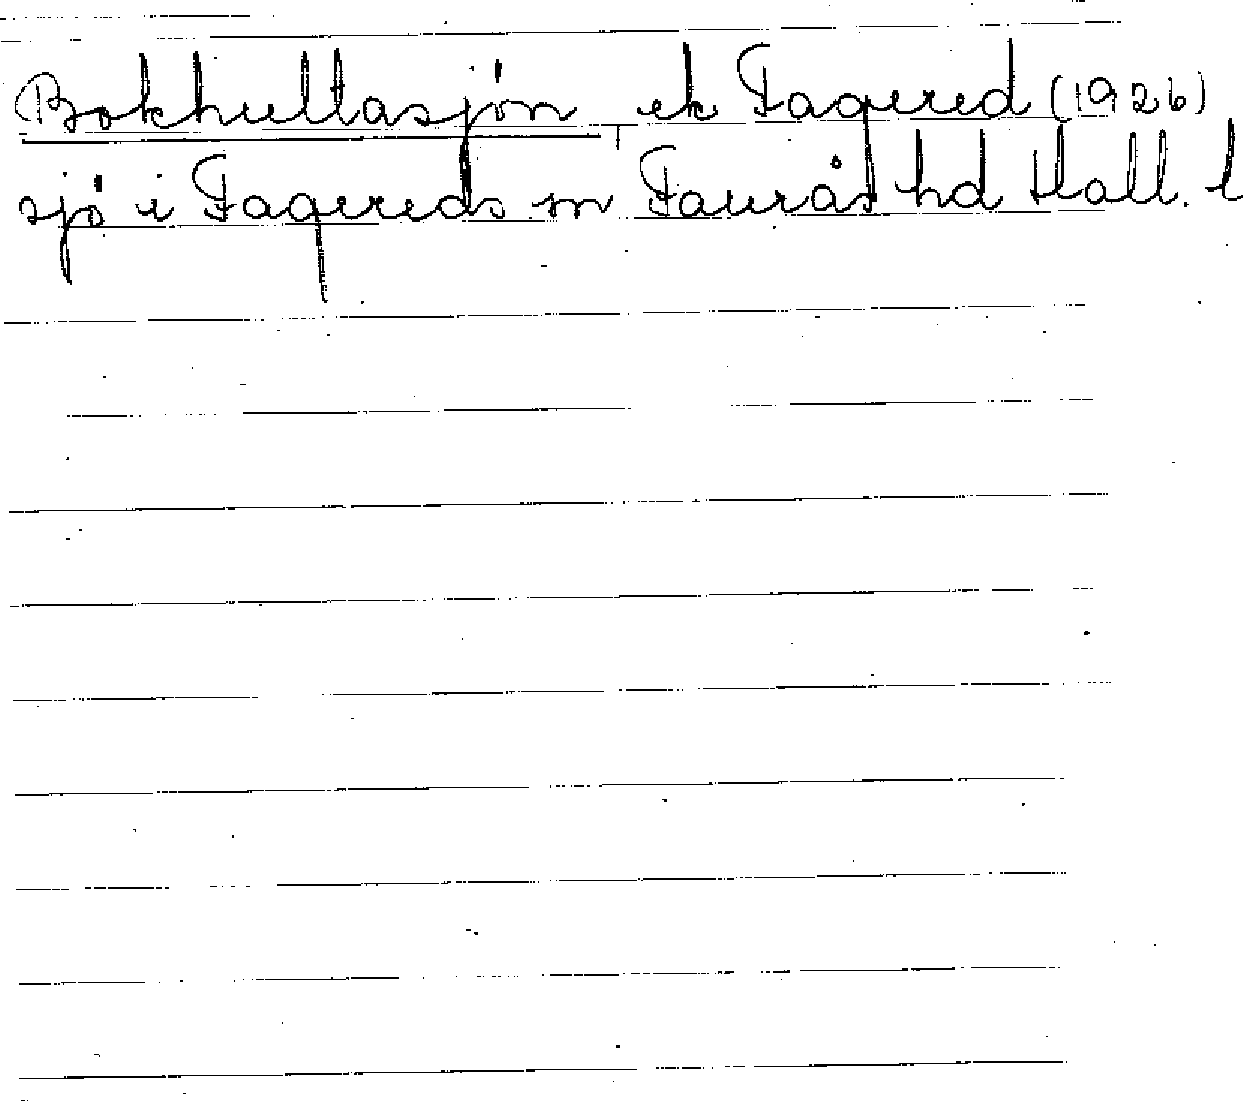 Bokhultasjön, ek Fagered (1926)
sjö i Fagereds sn Faurås hd Hall. l